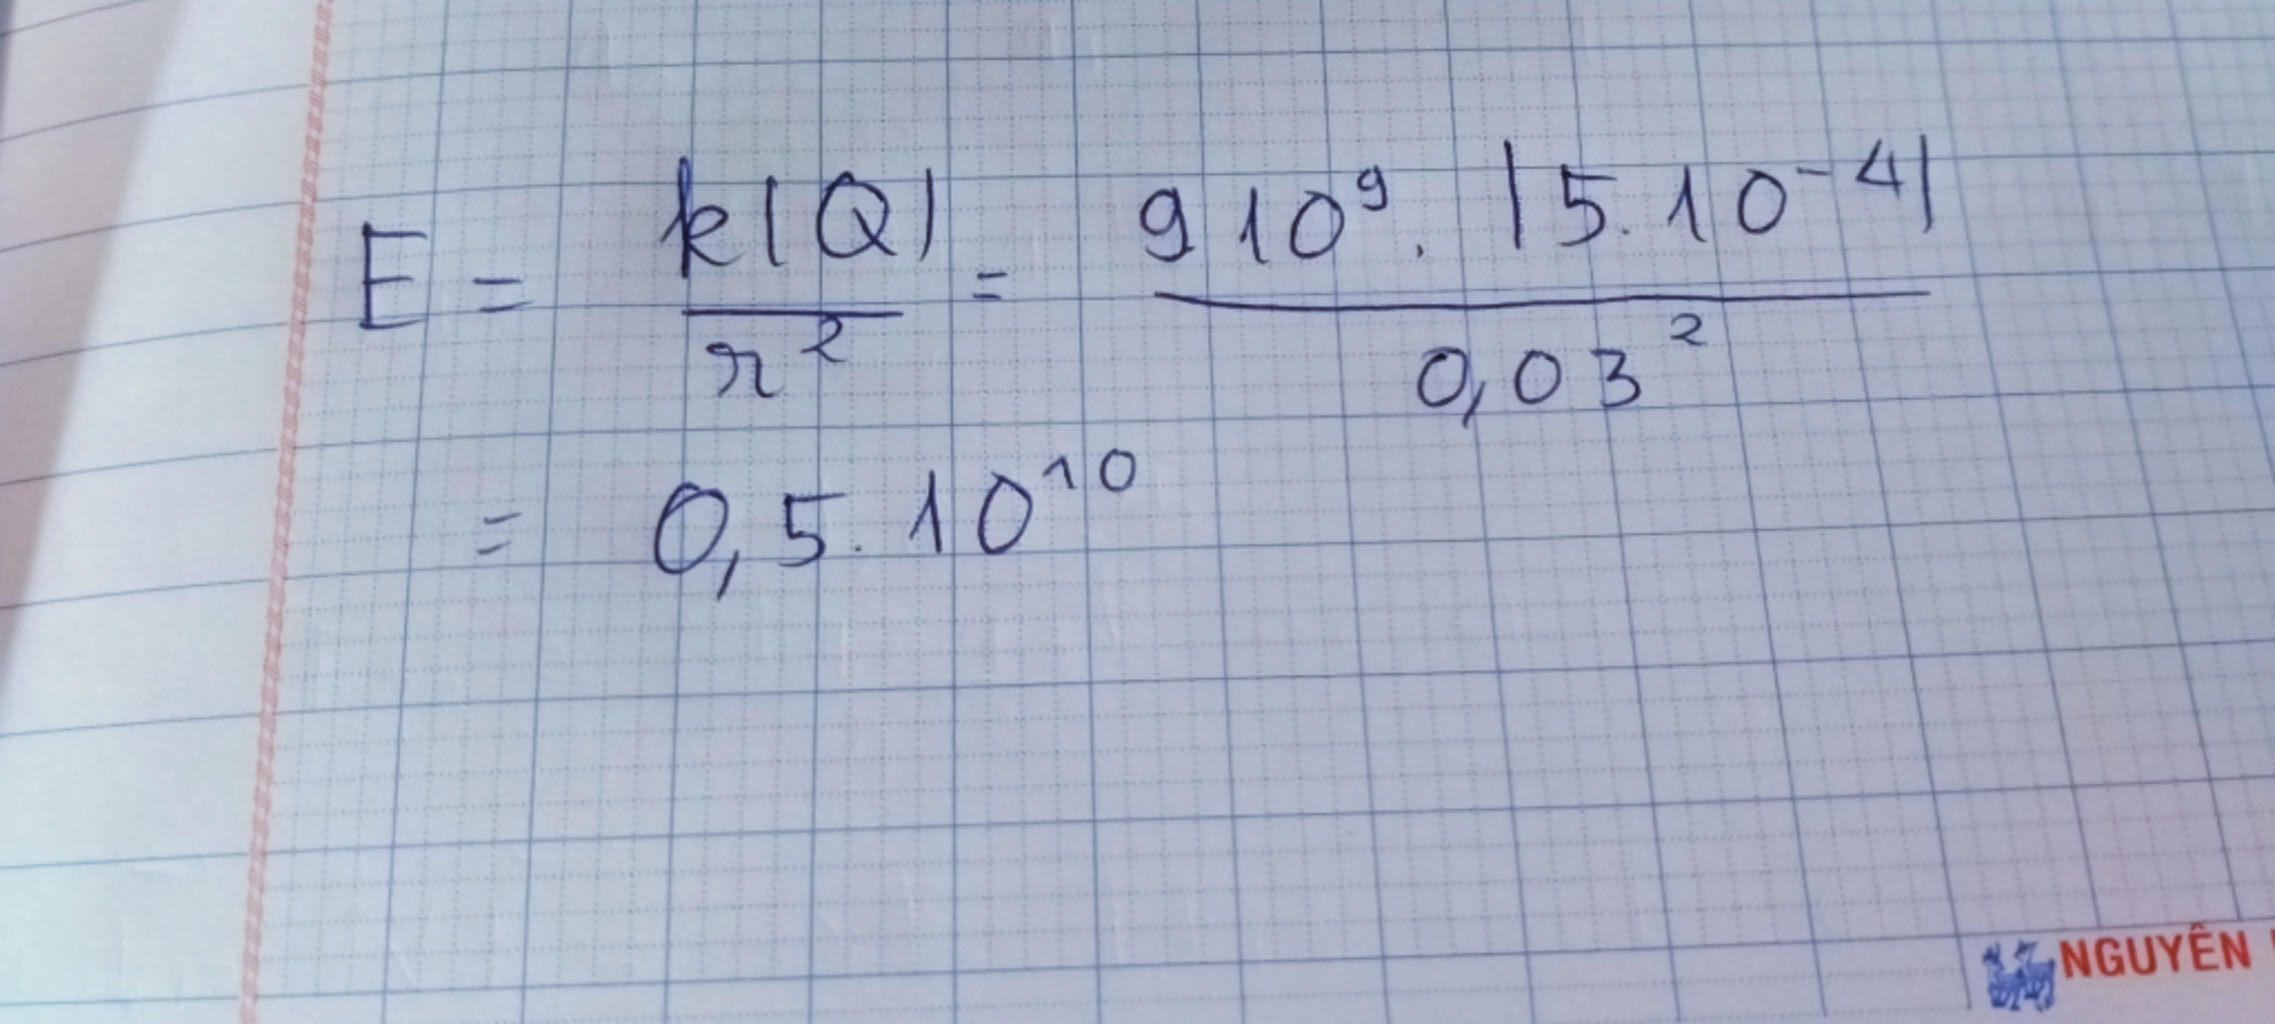 E = k|Q| / r² = 9 10⁹. |5.10⁻⁴| / 0,03²
= 0,5.10¹⁰
NGUYÊN